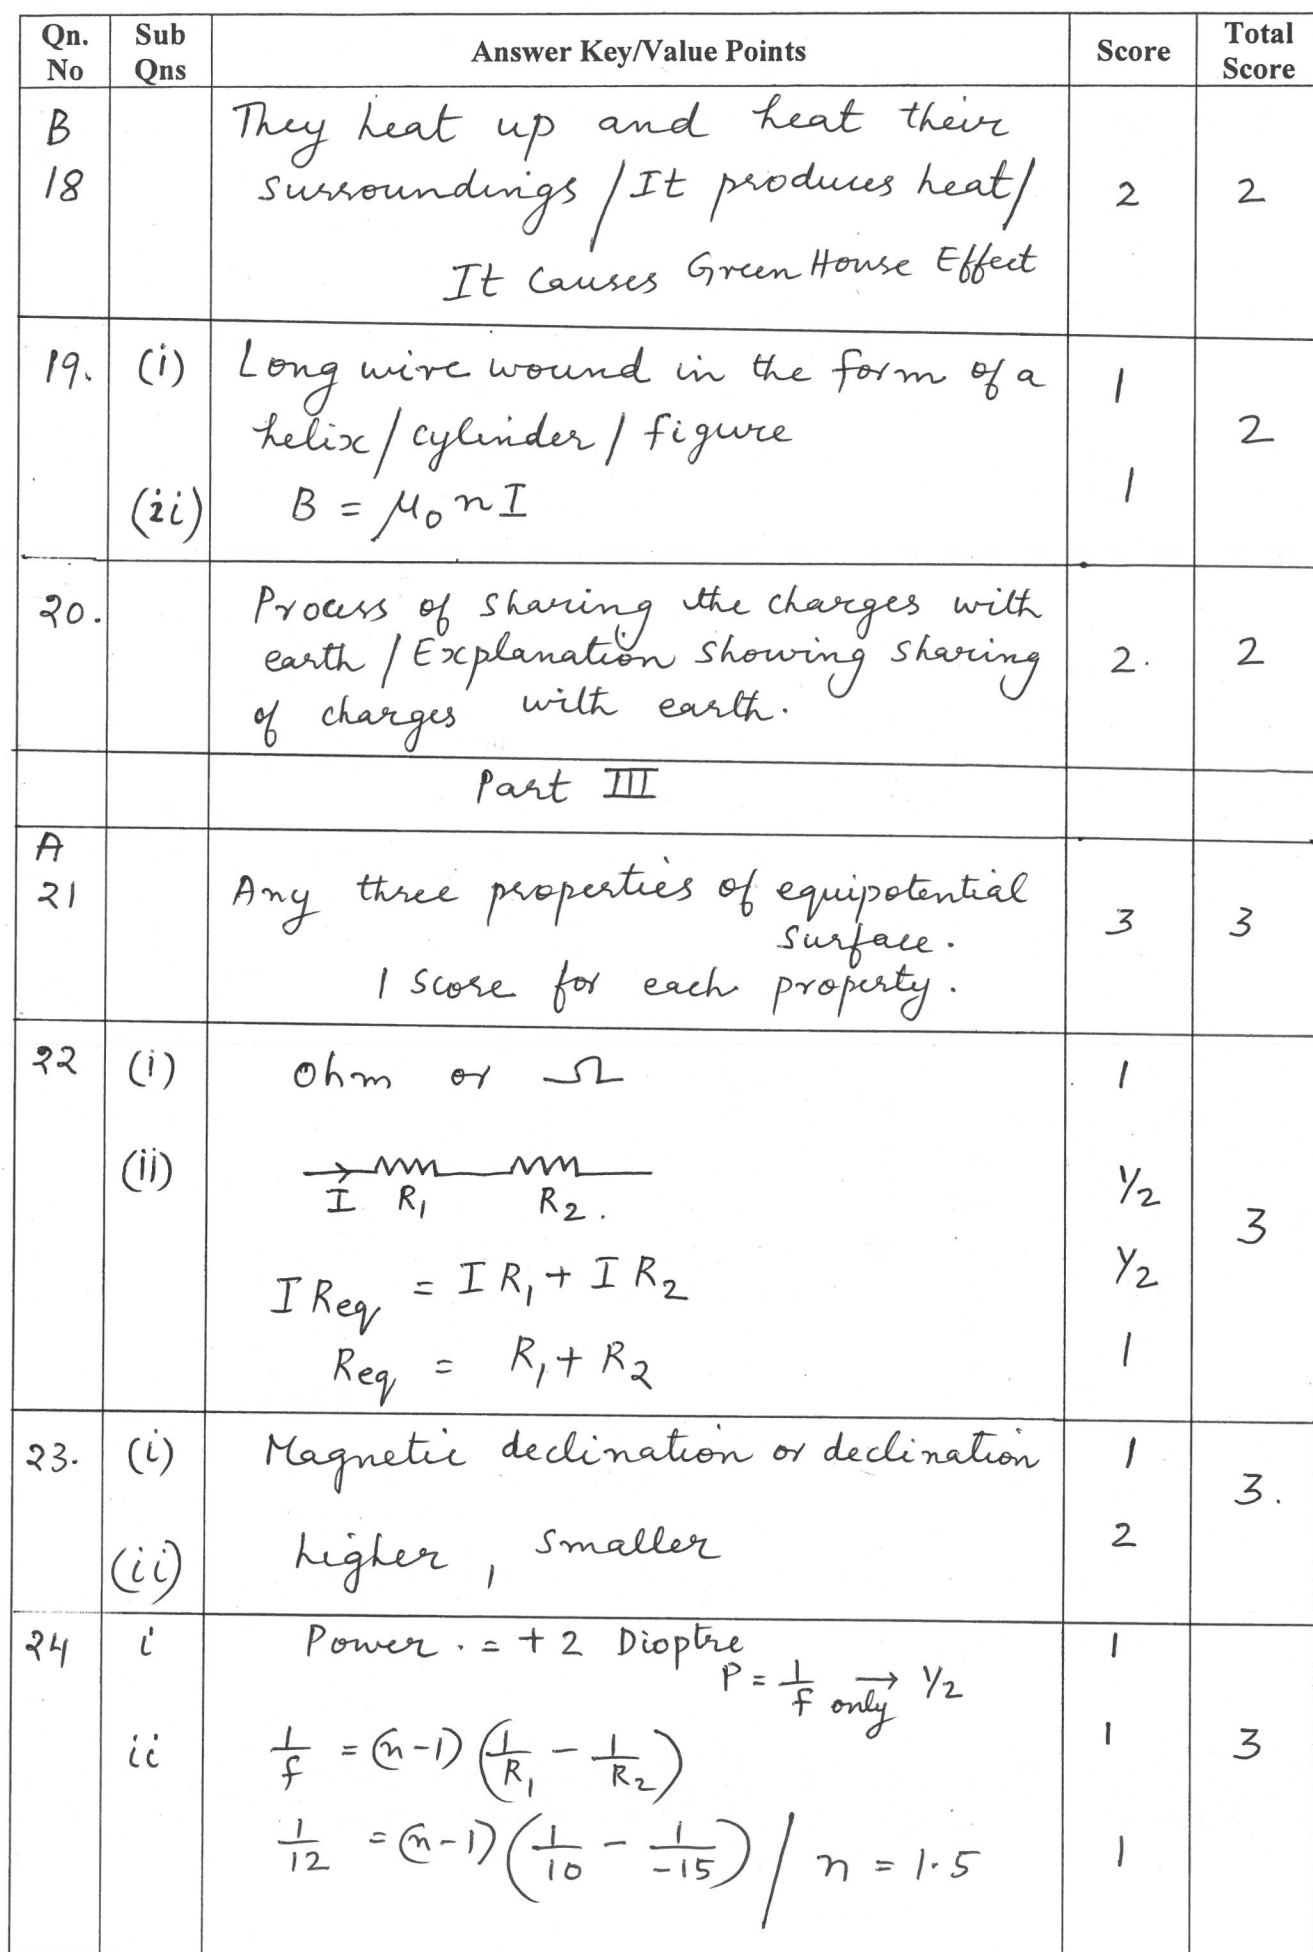 Qn. No Sub Qns Answer Key/Value Points Score Total Score
B They heat up and heat their
18 surroundings / It produces heat/ 2 2
It causes Green House Effect
19. (i) Long wire wound in the form of a 1
helix / cylinder / figure 2
(ii) B = μ₀ n I 1
20. Process of sharing the charges with
earth / Explanation showing sharing 2. 2
of charges with earth.
Part III
A
21 Any three properties of equipotential 3 3
surface.
1 score for each property.
22 (i) Ohm or Ω 1
(ii) 1/2
I R₁ R₂. 3
I Req = I R₁ + I R₂ 1/2
Req = R₁ + R₂ 1
23. (i) Magnetic declination or declination 1 3.
(ii) higher, smaller 2
24 i Power. = + 2 Dioptre 1
P = 1/f only → 1/2
ii 1/f = (n-1) (1/R₁ - 1/R₂) 1 3
1/12 = (n-1) (1/10 - 1/-15) / n = 1.5 1